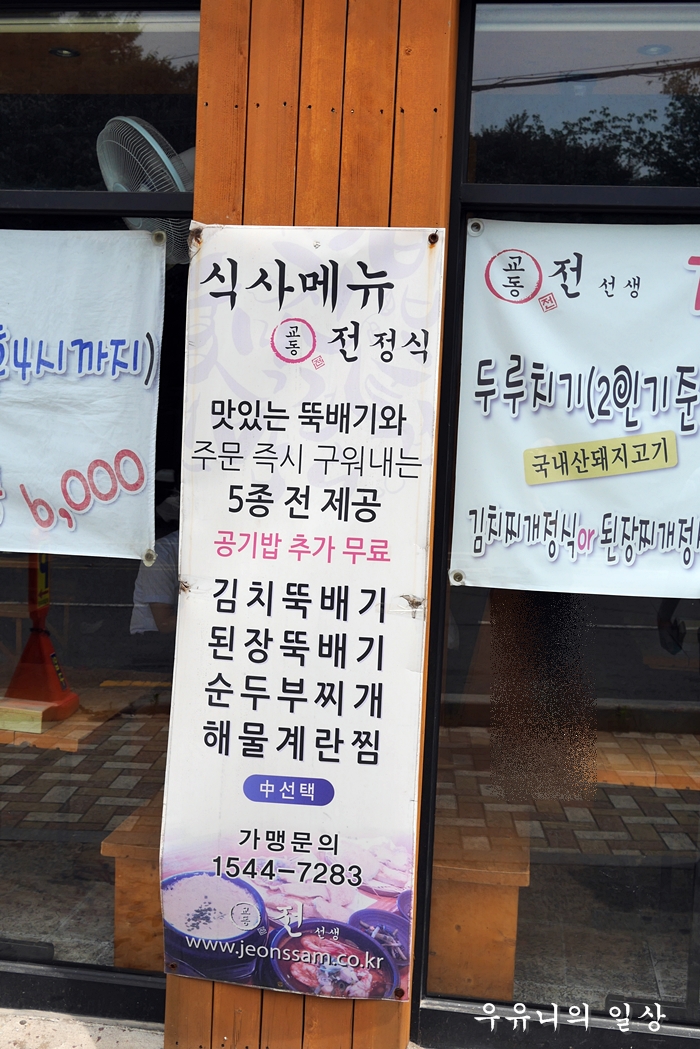 식사메뉴
교동 전 전정식
맛있는 뚝배기와
주문 즉시 구워내는
5종 전 제공
공기밥 추가 무료
김치뚝배기
된장뚝배기
순두부찌개
해물계란찜
中선택
가맹문의
1544-7283
교동 전 선생
www.jeonssam.co.kr
4시까지)
6,000
교동 전 전 선생
두루치기(2인기준
국내산돼지고기
김치찌개정식or 된장찌개정
우유니의 일상